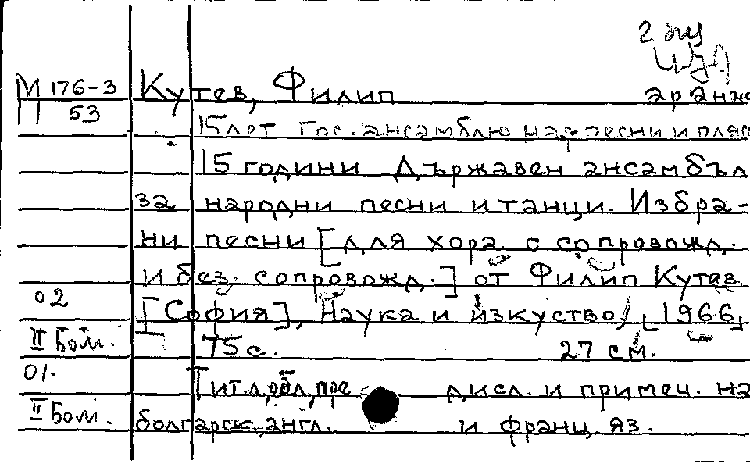 2 пу
ИЗД
М 176-3 Кутев, Филип аранж
53
15 лет Гос. ансамблю нар. песни и пляс
15 години Държавен ансамбъл
за народни песни и танци. Избра-
ни песни [для хора с сопровожд.
и без сопровожд.] от Филип Кутев
02 [София], Наука и изкуство, [1966]
II Бол. 75 с. 27 см.
01. Тит.л, обл, пре дисл. и примеч. на
II Бол. болгарск, англ. и франц. яз.